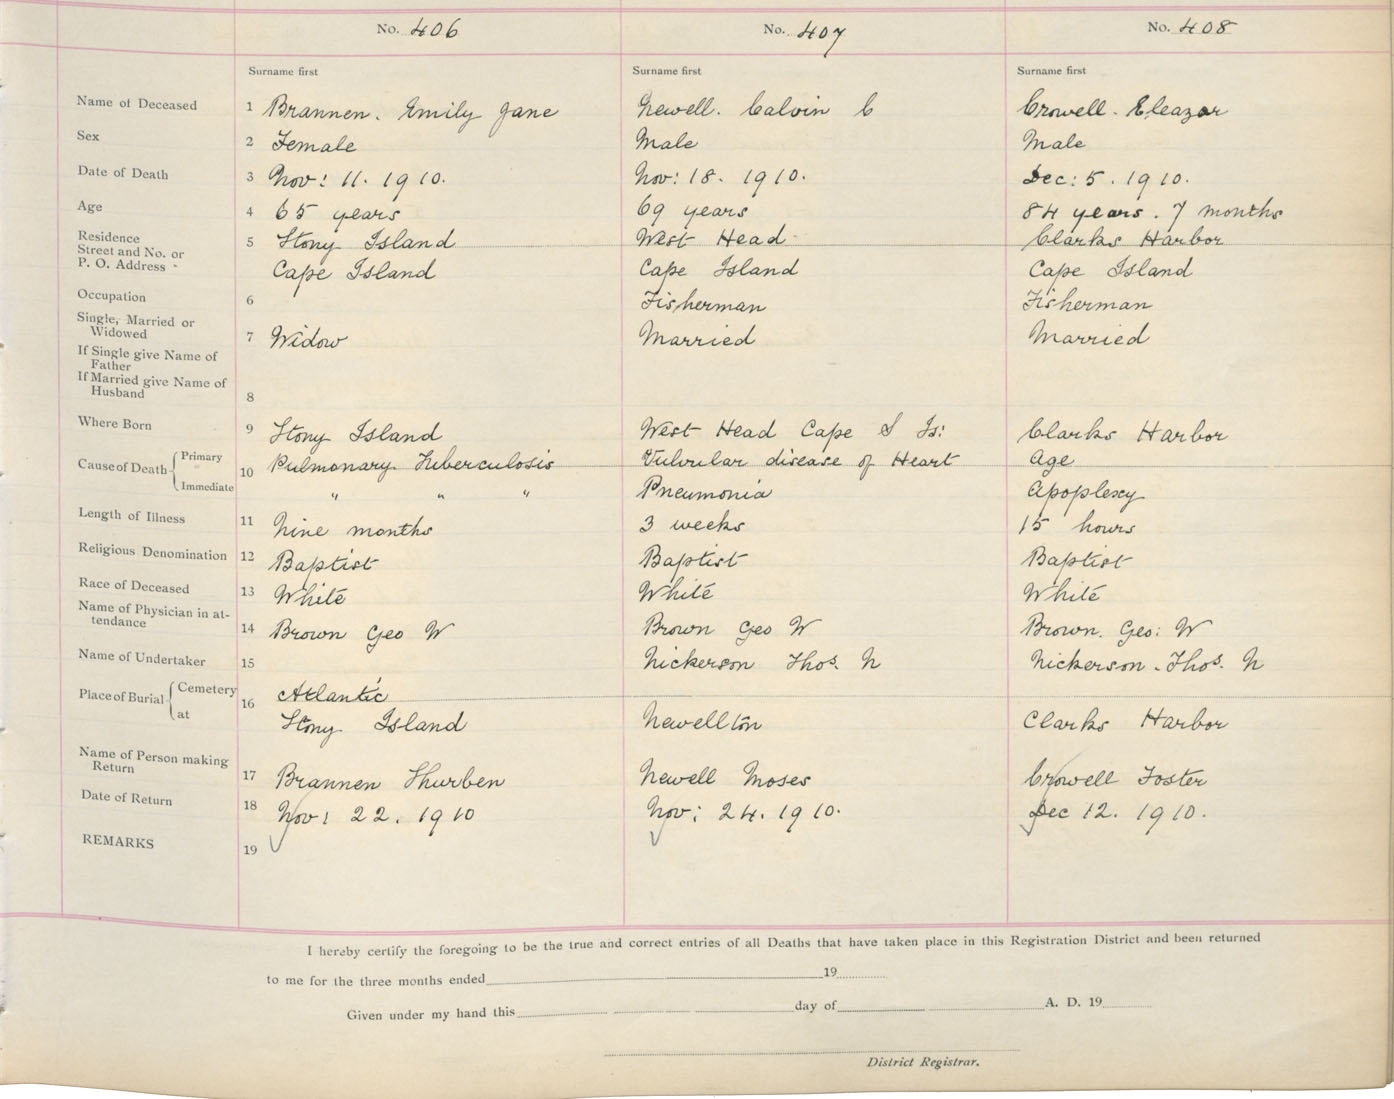 No. 406 No. 407 No. 408
Surname first Surname first Surname first
Name of Deceased 1 Brannen. Emily Jane Newell. Calvin C Crowell. Eleazor
Sex 2 Female Male Male
Date of Death 3 Nov: 11. 1910. Nov: 18. 1910. Dec: 5. 1910.
Age 4 65 years 69 years 84 years. 7 months
Residence
Street and No. or
P. O. Address
5 Stony Island West Head Clarks Harbor
Cape Island Cape Island Cape Island
Occupation 6 Fisherman Fisherman
Single, Married or
Widowed
7 Widow Married Married
If Single give Name of
Father
If Married give Name of
Husband
8
Where Born 9 Stony Island West Head Cape S Is: Clarks Harbor
Cause of Death Primary 10 Pulmonary Tuberculosis Vulvular disease of Heart Age
Immediate " " " Pneumonia Apoplexy
Length of Illness 11 Nine months 3 weeks 15 hours
Religious Denomination 12 Baptist Baptist Baptist
Race of Deceased 13 White White White
Name of Physician in at-
tendance
14 Brown Geo W Brown Geo W Brown. Geo: W
Name of Undertaker 15 Nickerson Thos. N Nickerson. Thos. N
Place of Burial Cemetery 16 Atlantic
at Stony Island Newellton Clarks Harbor
Name of Person making
Return
17 Brannen Thurben Newell Moses Crowell Foster
Date of Return 18 Nov: 22. 1910 Nov: 24. 1910. Dec 12. 1910.
REMARKS 19
I hereby certify the foregoing to be the true and correct entries of all Deaths that have taken place in this Registration District and been returned
to me for the three months ended 19
Given under my hand this day of A. D. 19
District Registrar.